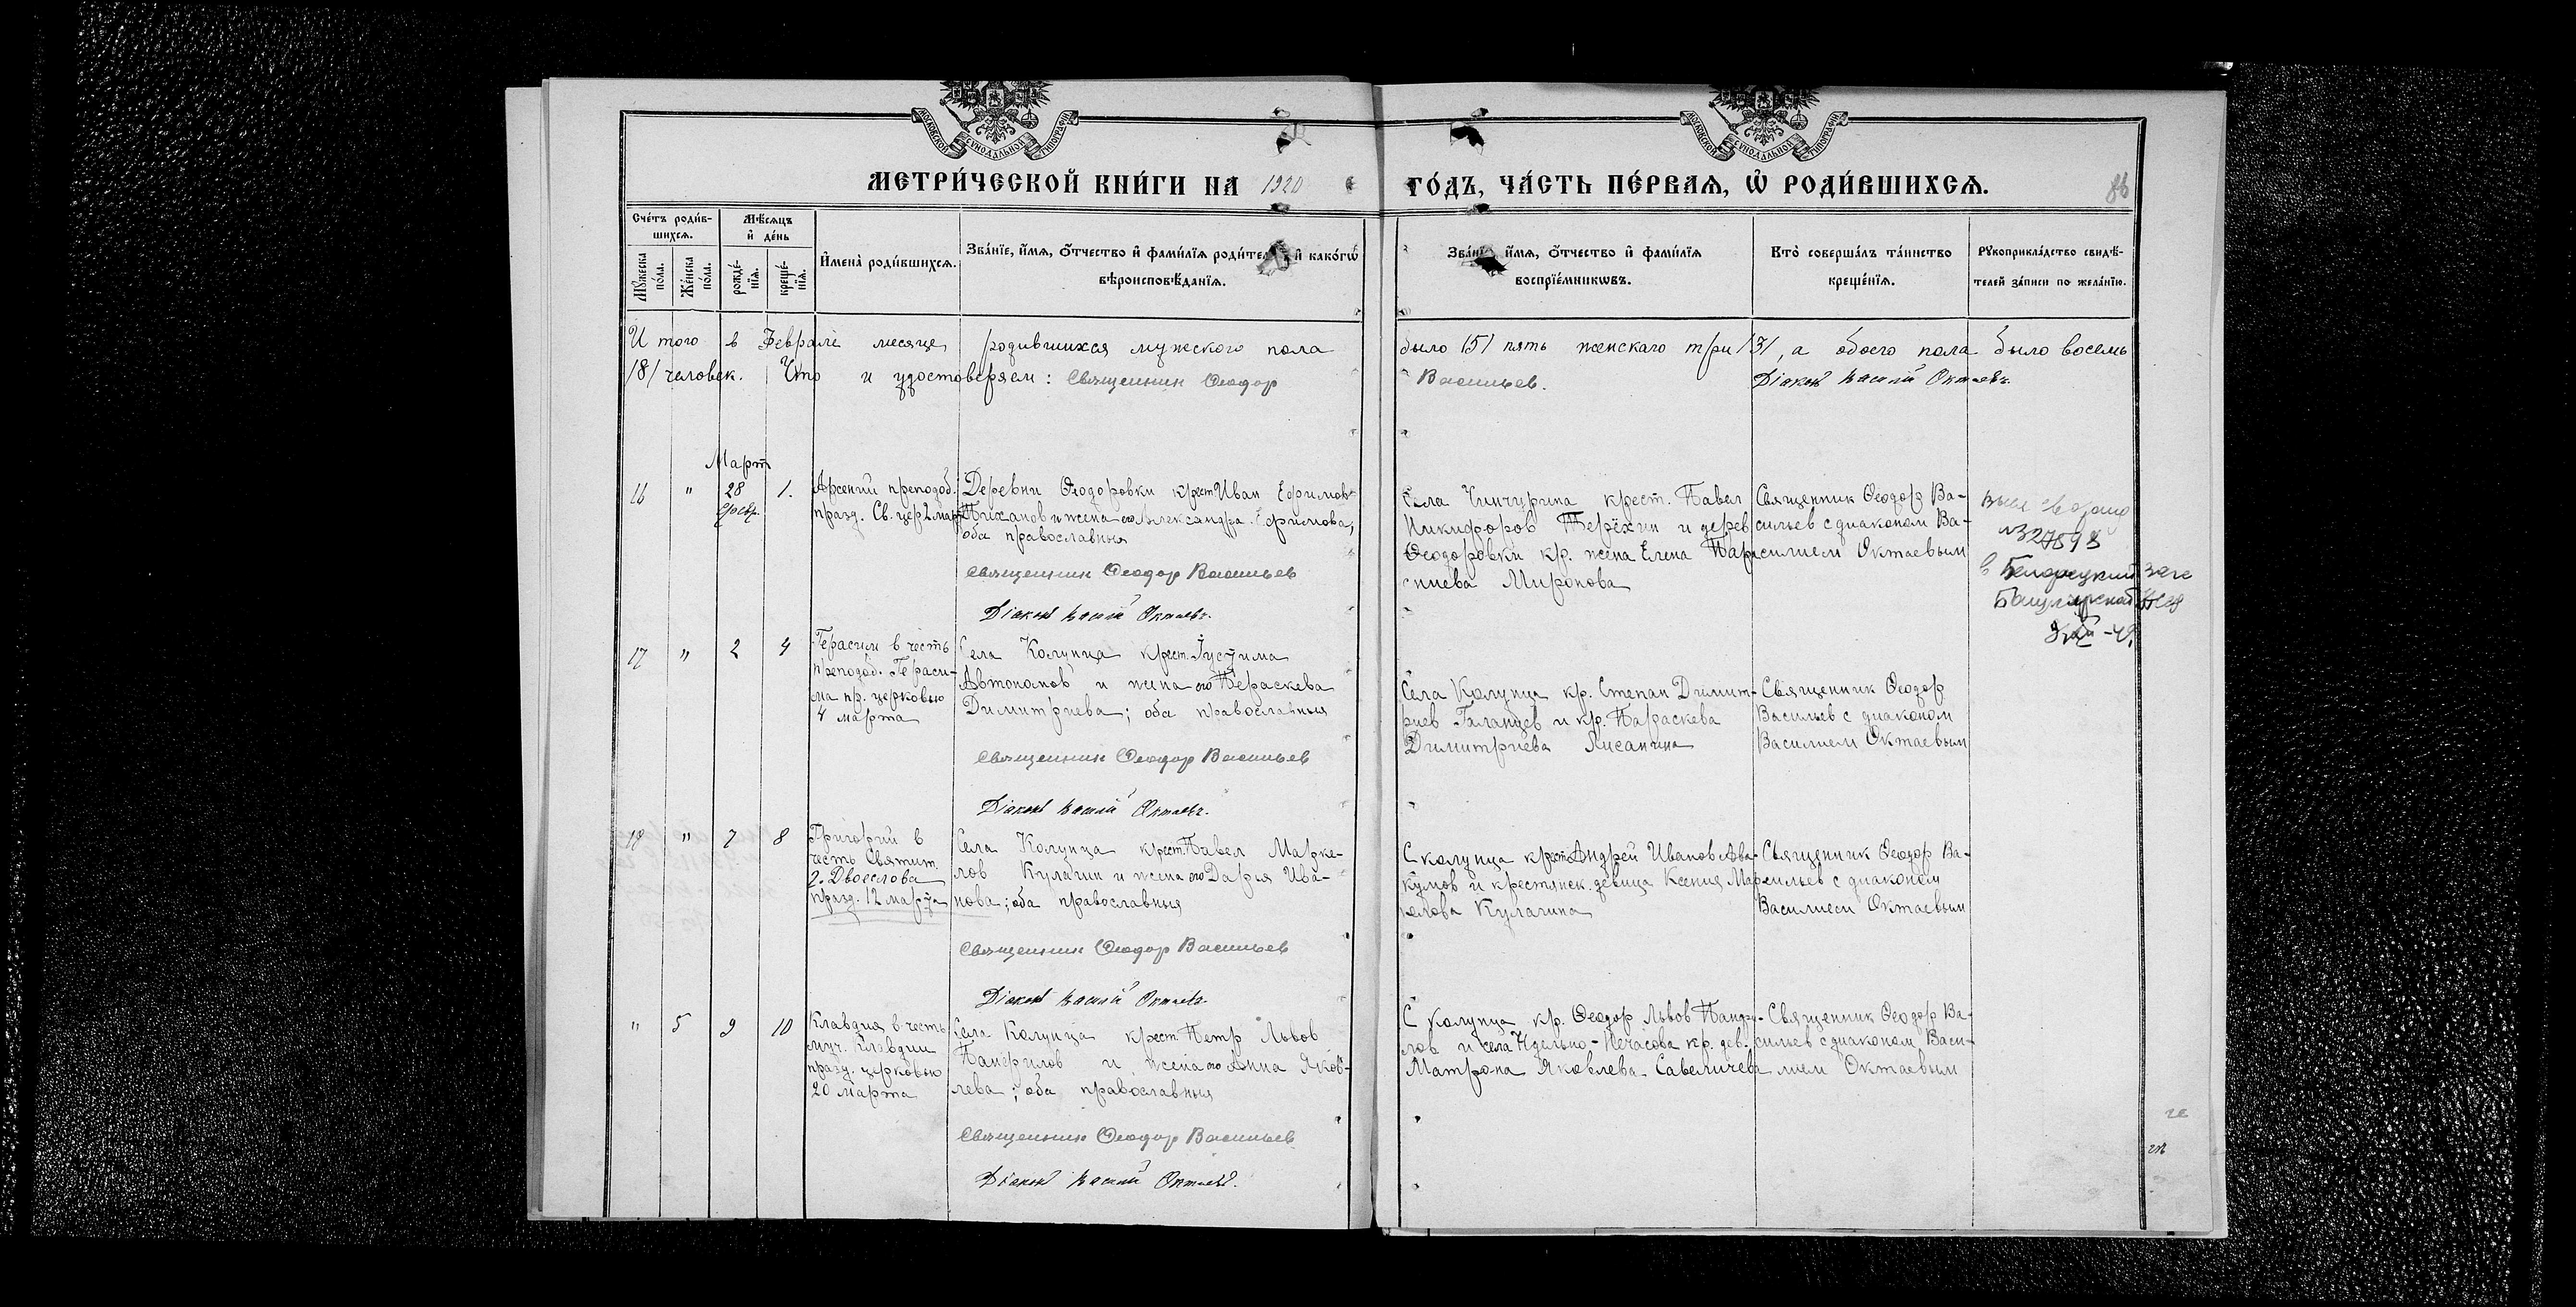 МОСКОВСКОЙ СѴНОДАЛЬНОЙ ТИПОГРАФІИ
МОСКОВСКОЙ СѴНОДАЛЬНОЙ ТИПОГРАФІИ
МЕТРИ́ЧЕСКОЙ КНИ́ГИ НА 1920 ГО́ДЪ, ЧА́СТЬ ПЕ́РВАЯ, Ѡ҆ РОДИ́ВШИХСЯ.
86
Сче́тъ роди́в-
шихся.
Мѣ́сяцъ
и҆ де́нь
Мꙋ́жеска
по́ла.
Же́нска
по́ла.
рожде́-
нїя.
креще́-
нїя.
И҆мена̀ роди́вшихся.
Зва́нїе, и҆́мя, ѻ҆́тчество и҆ фами́лїя роди́телей и҆ како́гѡ
вѣроисповѣ́данїя.
Зва́нїе, и҆́мя, ѻ҆́тчество и҆ фами́лїя
воспрїе́мникѡвъ.
Кто̀ соверша́лъ та́инство
креще́нїя.
Рꙋкоприкла́дство свидѣ́-
телей за́писи по жела́нїю.
Итого в Феврале месяце родившихся мужеского пола было /5/ пять женскаго три /3/, а обоего пола было восемь
/8/ человек. Что и удостоверяем: Священник Феодор Васильев. Діакон Василій Октаевъ.
Март
16 " 28 февр. 1.
Арсений преподоб.
празд. Св. цер 2 марта
Деревни Феодоровки крест Иван Ефимов
Тиханов и жена его Александра Ефимова,
оба православныя
Священник Феодор Васильев
Діакон Василій Октаевъ.
Села Чинчурина крест. Павел
Никифоров Терёхин и дерев
Феодоровки кр. жена Елена Пар
Миронова
Священник Феодор Ва-
сильев с диаконом Ва-
силием Октаевым
№
в Белорецкий загс
Башкирской
17 " 2 4
Герасим в честь
преподоб. Гераси-
ма пр. церковью
4 марта
Села Колунца крест. Іустима
Автономов и жена его Пераскева
Димитриева; оба православныя
Священник Феодор Васильев
Діакон Василій Октаевъ.
Села Колунца кр. Степан Димит-
риев Галанцев и кр. Параскева
Димитриева Лисанина
Священник Феодор
Васильев с диаконом
Василием Октаевым
18 " 7 8
Григорий в
честь Святит.
Г. Двоеслова
празд. 12 марта
Села Колунца крест Павел Марке-
лов Кулагин и жена его Дария Ива-
нова; оба православныя
Священник Феодор Васильев
Діакон Василій Октаевъ.
С Колунца крест Андрей Иванов Ава-
кумов и крестянск. девица Ксения Мар
келова Кулагина
Священник Феодор Ва-
сильев с диаконом
Василием Октаевым
" 5 9 10
Клавдия в честь
муч. Клавдии
празд. церковью
20 марта
Села Колунца крест Петр Львов
Панфилов и жена его Анна Яков-
лева; оба православныя
Священник Феодор Васильев
Діакон Василій Октаевъ.
С Колунца кр. Феодор Львов Панфи-
лов и села Идельно-Нечасова кр. дев.
Матрона Яковлева Савеличева
Священник Феодор Ва-
сильев с диаконом Васи-
лием Октаевым